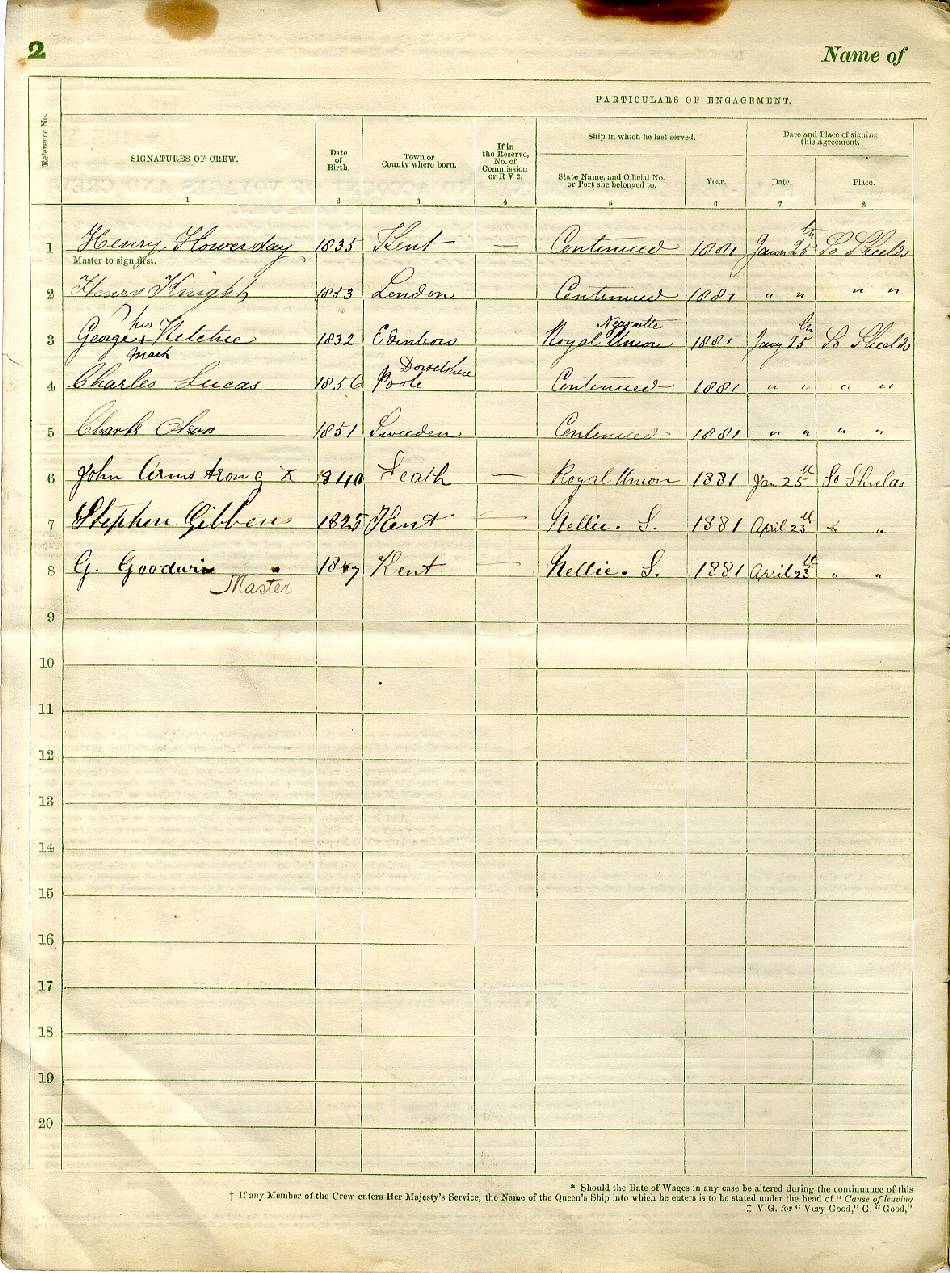 2
Name of
PARTICULARS OF ENGAGEMENT.
Reference No.
SIGNATURES OF CREW.
Date of Birth.
Town or County where born.
If in the Reserve, No. of Commission or R V 2.
Ship in which he last served.
Date and Place of signing this Agreement.
State Name, and Official No. or Port she belonged to.
Year.
Date.
Place.
1 2 3 4 5 6 7 8
1 Henry Flowerday 1835 Kent — Continued 1881 25th So Shields
Master to sign first.
2 Henry Knight London Continued 1881 " " " "
3 George his mark Ritchie 1832 Royal Union 1881 Jany 25th So Shields
4 Charles Lucas 1856 Poole Dorsetshire Continued 1881 " " " "
5 1851 Sweden Continued 1881 " " " "
6 John Armstrong X 1840 Leath — Royal Union 1881 Jan 25th So Shields
7 Stephen Gibbens 1825 Kent — Nellie. S. 1881 April 23th " "
8 G. Goodwin 1847 Kent — Nellie. S. 1881 April 23th " "
Master
9
10
11
12
13
14
15
16
17
18
19
20
* Should the Rate of Wages in any case be altered during the continuance of this
† If any Member of the Crew enters Her Majesty's Service, the Name of the Queen's Ship into which he enters is to be stated under the head of "Cause of leaving
‡ V G. for "Very Good," G. "Good,"